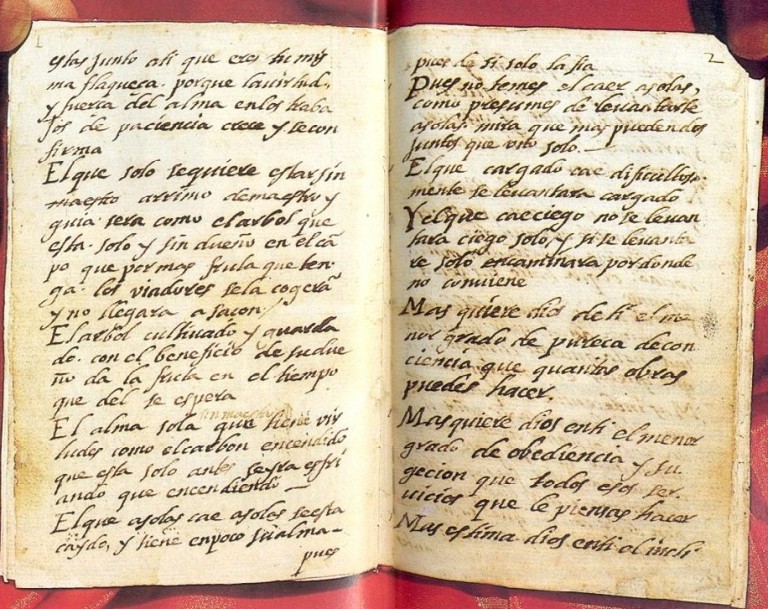 estas junto ati que eres tu mis
ma flaqueca. porque la virtud,
y fuerca del alma enlos traba
jos de paciencia crece y se con
firma
El que solo se quiere estar sin
maestro arrimo de maestro y
guia. sera como el arbol que
esta. solo y sin dueño en el cã
po que por mas fruta que ten
ga. los viadores se la cogerã
y no llegara a sacon.
El arbol cultivado y guarda
do. con el beneficio de su due
ño da la fruta en el tiempo
que del se espera
sin maestro
El alma sola que tiene vir
tudes como el carbon encendido
que esta solo antes se yra esfri
ando que encendiendo
El que asolas cae asolas se esta
caydo, y tiene en poco su alma
pues
2
pues de si solo la fia
Pues no temes el caer asolas,
como presumes de levantarte
asolas. mira que mas pueden dos
juntos que uno solo.
El que cargado cae dificultosa
mente se levantara cargado
Y el que cae ciego no se levan
tara ciego solo, y si se levanta
re solo encaminara por donde
no conviene
Mas quiere dios de ti el me
nor grado de pureca de con
ciencia que quantas obras
puedes hacer.
Mas quiere dios enti el menor
grado de obediencia y su
gecion que todos esos ser
vicios que le piensas hacer
Mas estima dios enti el incli